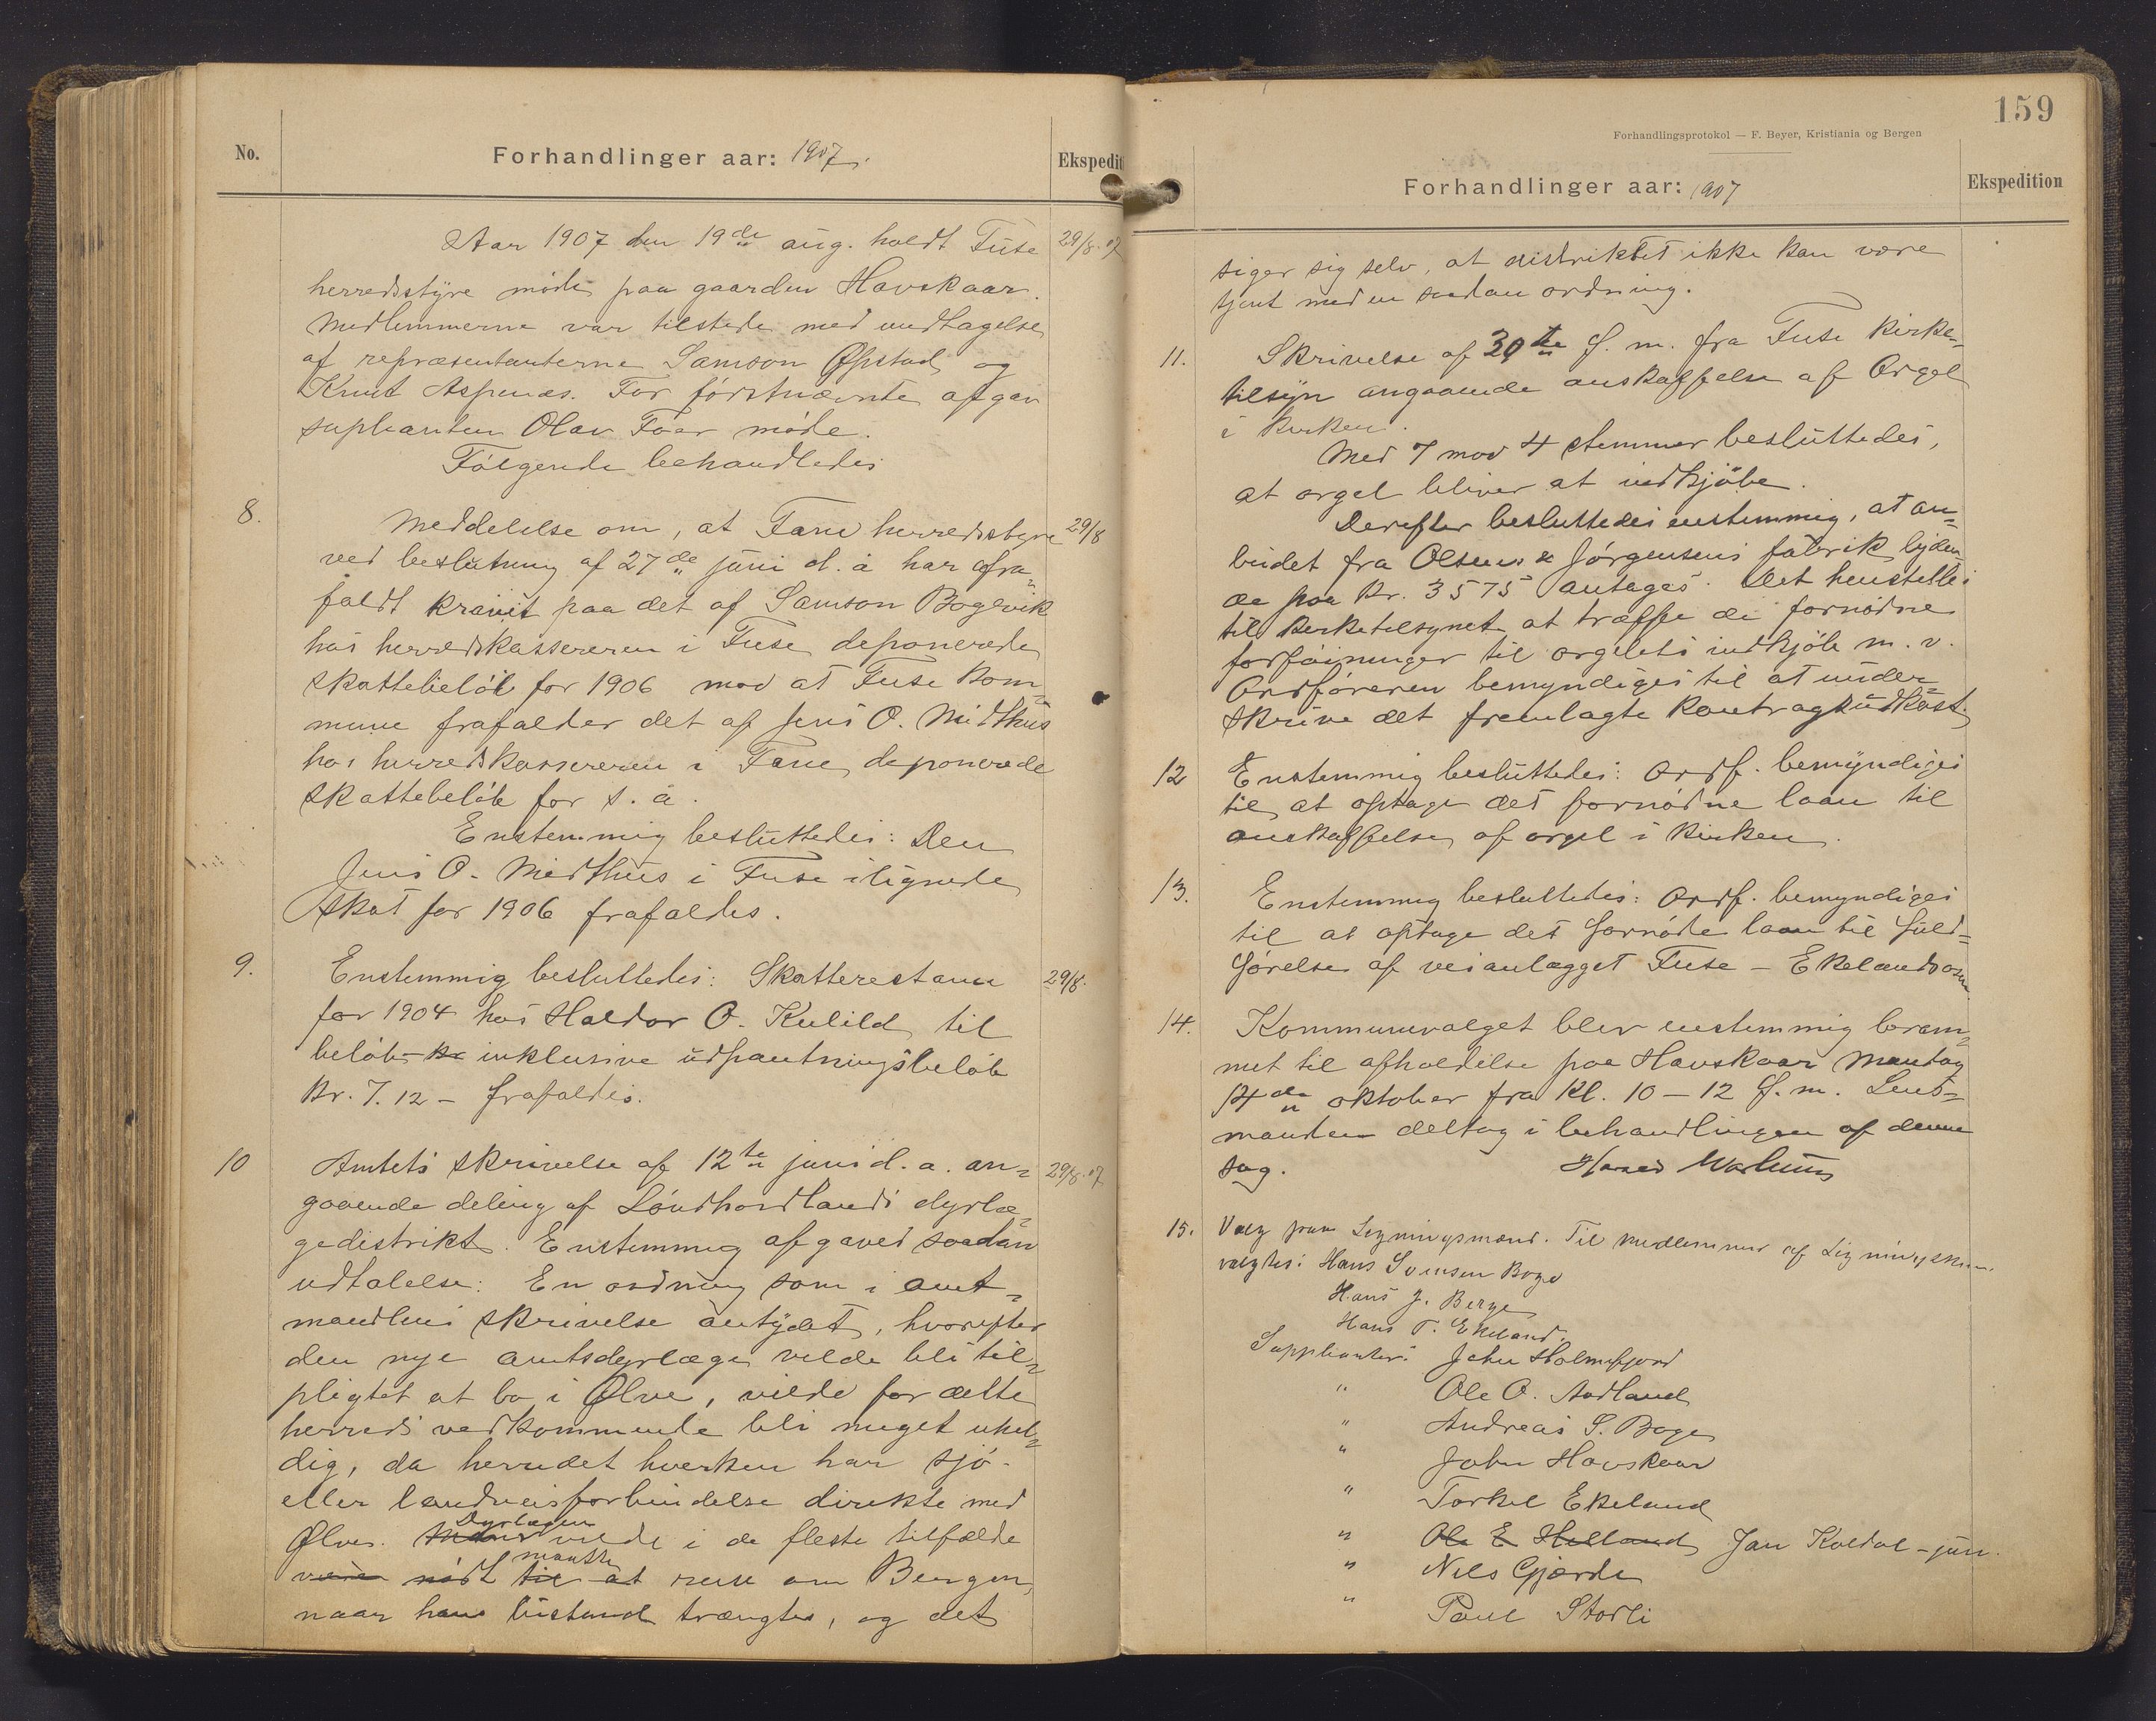 No.
Forhandlinger aar: 1907.
Ekspedit
Aar 1907 den 19de aug. holdt Fuse
29/8.07
herredsstyre møde paa gaarden Havskaar.
Medlemmerne var tilstede med undtagelse
af repræsentanterne Samson Øpstad og
Knut Aspenæs. For førstnævnte afgav
supleanten Olav Tøer møde.
Følgende behandledes
8.
Meddelelse om, at Fane herredsstyre
29/8
ved beslutning af 27de juni d. å har fra-
faldt kravet paa det af Samson Bogevik
hos herredskassereren i Fuse deponerede
skattebeløb for 1906 mod at Fuse kom-
mune frafalder det af Jens O. Midthus
hos herredskassereren i Fane deponerede
skattebeløb for s. å.
Enstemmig besluttedes: Den
Jens O. Midthus i Fuse ilignede
skat for 1906 frafaldes.
9.
Enstemmig besluttedes: Skatterestanse
29/8.
for 1904 hos Haldor O. Kulild til
beløb kr inklusive udpantningsbeløb
Kr. 7.12 – frafaldes.
10
Amtets skrivelse af 12te juni d. a. an-
29/8.07
gaaende deling af Søndhordlands dyrlæ-
gedistrikt. Enstemmig afgaves saadan
udtalelse: En ordning som i amt-
mandens skrivelse antydet, hvorefter
den nye amtsdyrlæge vilde bli til-
pligtet at bo i Ølve, vilde for dette
herreds vedkommende bli meget uhel-
dig, da herredet hverken har sjø-
eller landveisforbindelse direkte med
Dyrlægen
Ølve. vilde i de fleste tilfælde
maatte
være nødt til at reise om Bergen,
naar hans bistand trængtes, og det
159
Forhandlingsprotokol — F. Beyer, Kristiania og Bergen
Forhandlinger aar: 1907
Ekspedition
siger sig selv, at distriktet ikke kan være
tjent med en saadan ordning.
11.
Skrivelse af 30te f. m. fra Fuse kirke-
tilsyn angaaende anskaffelse af Orgel
i kirken.
Med 7 mod 4 stemmer besluttedes,
at orgel bliver at indkjøbe.
Derefter besluttedes enstemmig, at an-
budet fra Olsen & Jørgensens fabrik lyden-
de paa Kr. 3575 antages. Det henstilles
til kirketilsynet at træffe de fornødne
forføininger til orgelets indkjøb m. v.
Ordføreren bemyndiges til at under-
skrive det fremlagte kontraktudkast.
12
Enstemmig besluttedes: Ordf. bemyndiges
til at optage det fornødne laan til
anskaffelse af orgel i kirken.
13.
Enstemmig besluttedes: Ordf. bemyndiges
til at optage det fornøde laan til fuld-
førelse af veianlægget Fuse – Ekelandsosen.
14.
Kommunevalget blev enstemmig beram-
met til afholdelse paa Havskaar mandag
14de oktober fra Kl. 10 – 12 f. m. Lens-
manden deltog i behandlingen af denne
sag.
15.
Valg paa Ligningsmænd. Til medlemmer af Ligningskom.
valgtes: Hans Svensen Boge
Hans J. Berge
Hans T. Ekeland.
Supplianter: John Holmefjord
" Ole O. Aadland
" Andreas S. Boge
" John Havskaar
" Torkel Ekeland
" Ole E Helland Jan Koldal – jun.
" Nils Gjærde
" Paul Storli